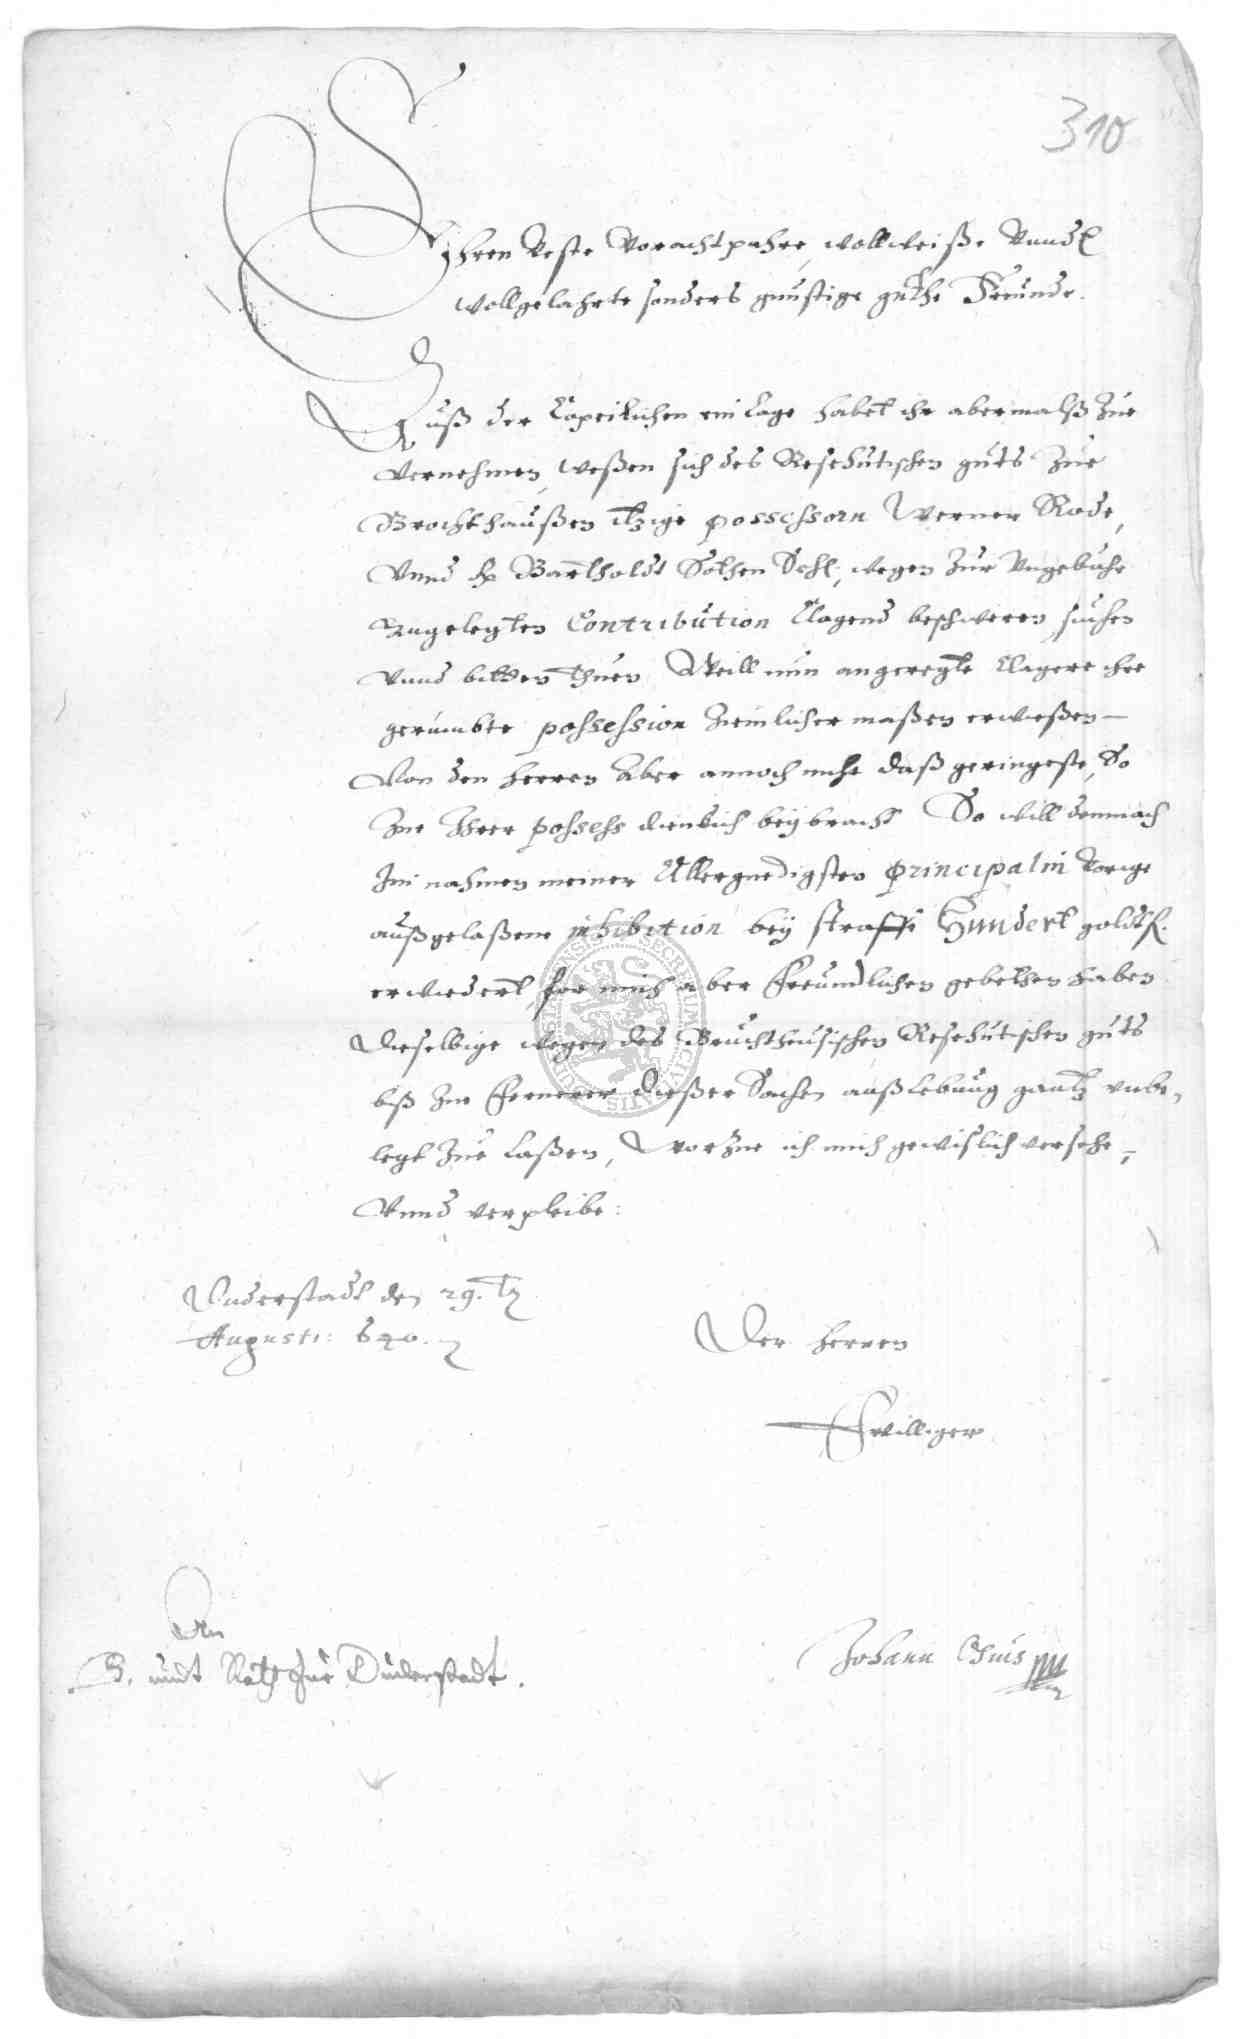 310
Ehren Veste Vorachtpahre, wollweiße Unndt
wollgelahrte sonders günstige guthe Freunde.
Auß der Copeilichen einlage habet ihr abermalß Zue
vernehmen, weßen sich des Resehutischen guts Zue
Brochthaußen itzige possessorn Werner Rode,
Unnd Bartholdt Sothen Sehl, wegen Zur Ungebuhr
Angelegten Contribution Clagend beschweren, suchen
Unnd bitten thuen, Weill nun angeregte Clagere ihre
gerümbte possession Zimlicher maßen erwießen
Von den herren Aber annoch nicht daß geringeste, So
Zue Ihrer possess dienlich beÿbracht So will demnach
Im nahmen meiner Allergnedigsten Principalin Vorige
außgelaßene inhibition beÿ straff Hundert goldtfl.
erwiedert, for mich aber Freundlichen gebethen haben
Dieselbige wegen des Bruchtheusischen Resehutischen guts
biß Zue Fernerer dießer Sachen außlebung gantz unbe-
legt Zue Laßen, Worzue ich mich gewißlich versehe,
Unnd verpleibe:
Duderstadt den 29. ten
Augusti: 640.
Der herren
Dwilliger
An
B. undt Rath zue Duderstadt.
Johann
SECRETUM CIVITATIS